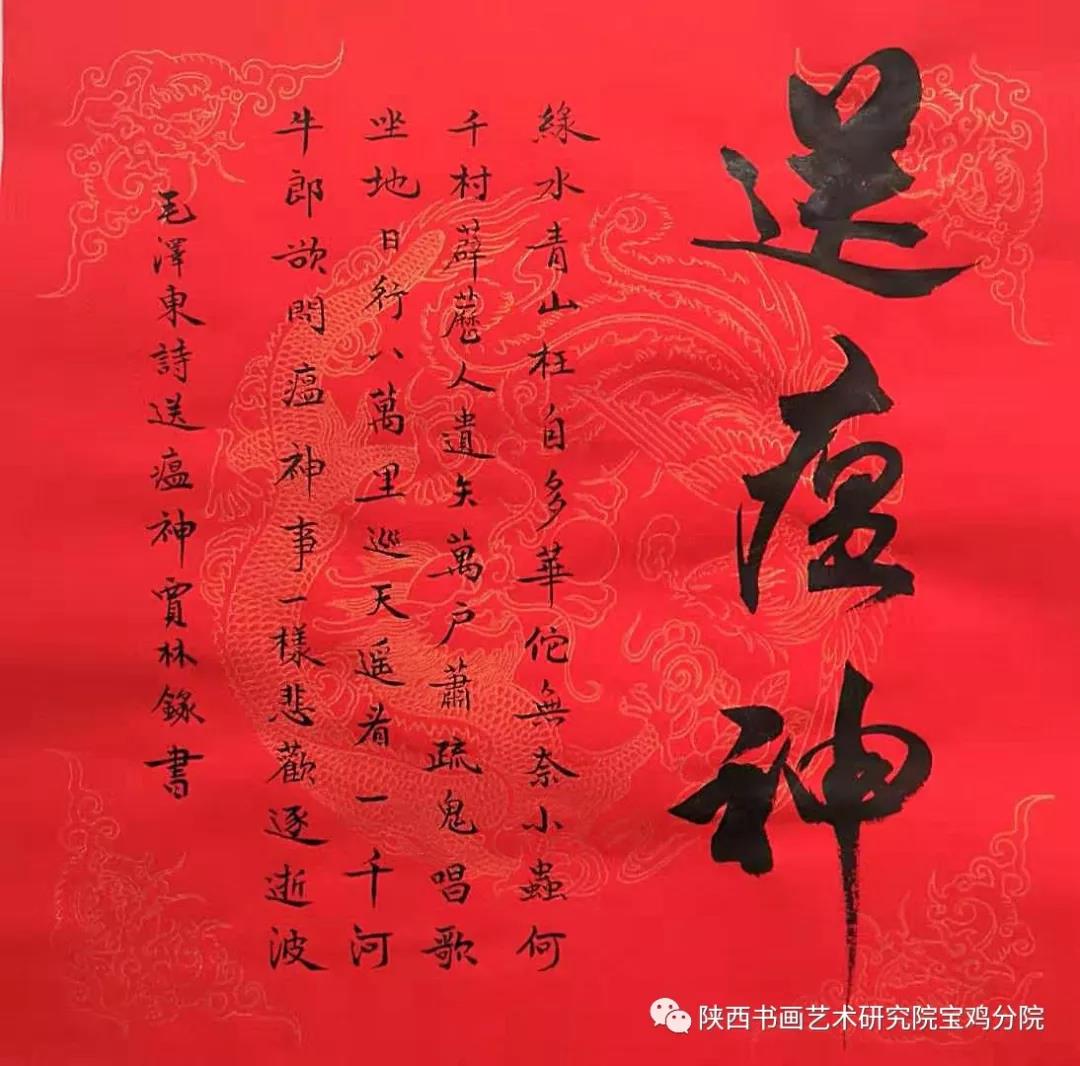 送瘟神
綠水青山枉自多華佗無奈小蟲何
千村薜藶人遺矢萬户蕭疏鬼唱歌
坐地日行八萬里巡天遥看一千河
牛郎欲問瘟神事一樣悲歡逐逝波
毛澤東詩送瘟神賈林錄書
陕西书画艺术研究院宝鸡分院